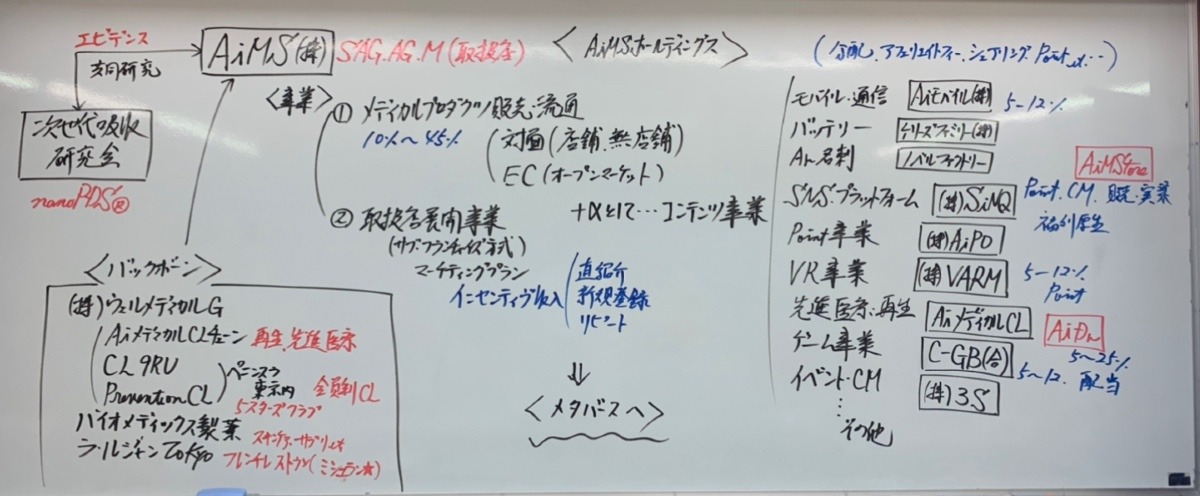 エビデンス
共同研究
AiMS(株)
SAG.AG.M(取扱店)
次世代の吸収
研究会
nanoPDS®
<事業>
① メディカルプロダクツ販売・流通
10%〜45%
対面(店舗、無店舗)
EC(オープンマーケット)
② 取扱店展開事業
(サブ・フランチャイズ方式)
マーケティングプラン
インセンティブ収入
直紹介
新規登録
リピート
+αとして…コンテンツ事業
⇓
<メタバースへ>
<バックボーン>
(株)ウェルメディカルG
AiメディカルCLチェーン 再生、先進医療
CL 9RU
PreventionCL
ペニンスラ
東京内
会員制CL
5スターズクラブ
バイオメディックス製薬 スキンケア・サプリ、etc
ラ・ルジャンTokyo フレンチレストラン(ミシュラン☆)
<AiMSホールディングス>
(分配、アフェリエイトフィー、シェアリング、Point、et…)
モバイル・通信 Aiモバイル(株) 5-12%
バッテリー ケリーズファミリー(株)
Ai名刺 ノベルファクトリー
AiMStore
SNS・プラットフォーム (株)SiNQ Point、CM、販売、実業
福利厚生
Point事業 (株)AiPO
VR事業 (株)VARM 5-12%
Point
先進医療・再生 AiメディカルCL
ゲーム事業 C-GB(合) 5〜12.
5〜25%
配当
イベント・CM (株)3S
その他